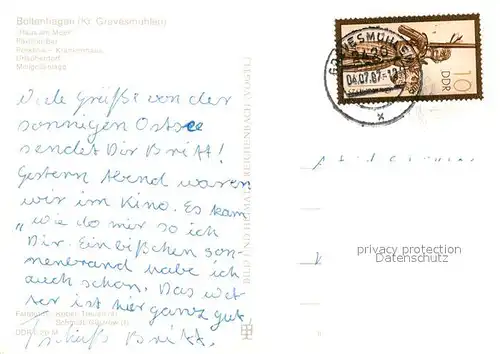 Boltenhagen (Kr. Grevesmühlen)
"Haus am Meer"
Pavillon-Bar
Urlauberdorf
Minigolfanlage
Viele Grüße von der
sonnigen Ostsee
sendet Dir Britt!
Gestern Abend waren
wir im Kino. Es kam
„wie du mir so ich
Dir. Ein bißchen son-
nenbrand habe ich
auch schon. Das wet-
ter ist hier ganz gut
Tschüß Britt.
BILD UND HEIMAT REICHENBACH (VOGTL)
GREVESMÜHLEN
2420
04.07.87
10
DDR
privacy protection
Datenschutz